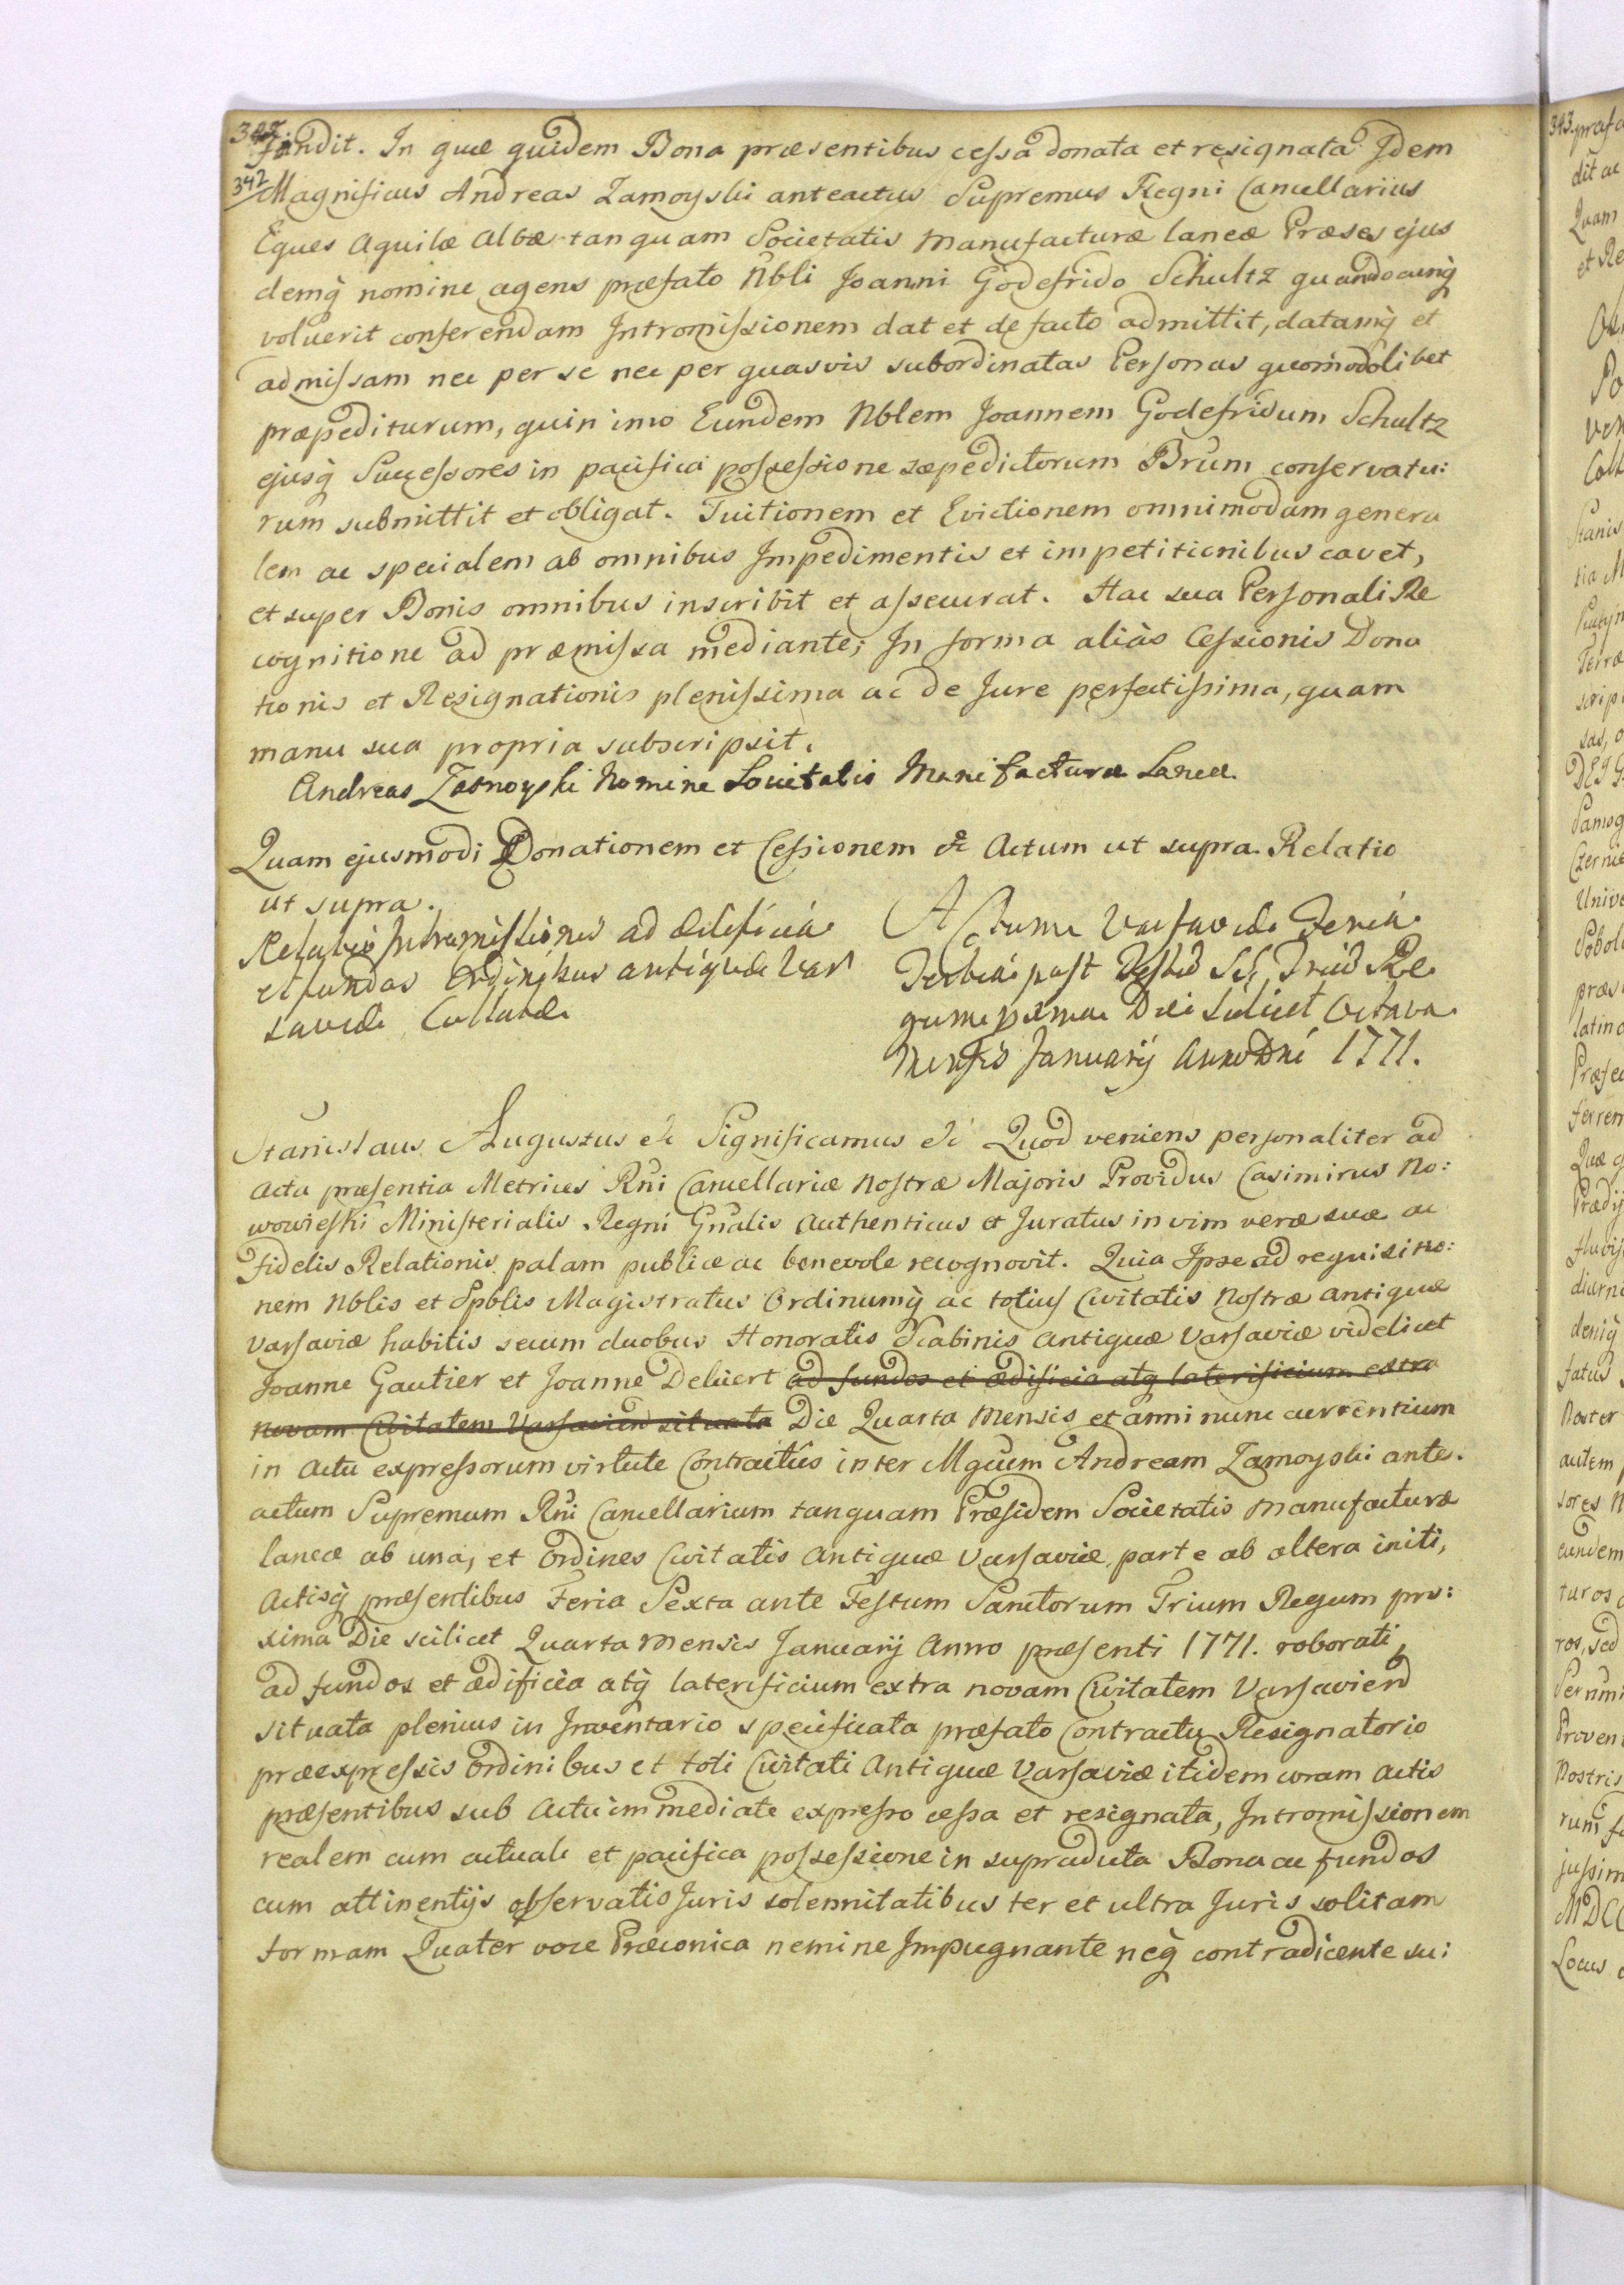 342
fundit. In quæ quidem Bona præsentibus cessa donata et resignata Idem
Magnificus Andreas Zamoyski anteactus Supremus Regni Cancellarius
Eques Aquilæ Albæ tanquam Societatis Manufacturæ laneæ Præses ejus
demq̃ nomine agens præfato Nbli Joanni Godefrido Schultz quandocunq̃
voluerit conferendam Intromissionem dat et de facto admittit, datamq̃ et
admissam nec per se nec per quasvis subordinatas Personas quomodolibet
præpediturum, quin imo Eundem Nblem Joannem Godefridum Schultz
ejusq̃ Successores in pacifica possessione sæpedictorum Brum conservatu:
rum submittit et obligat. Tuitionem et Evictionem omnimodam genera
lem ac specialem ab omnibus Impedimentis et impetitionibus cavet,
et super Bonis omnibus inscribit et assecurat. Hac sua Personali Re
cognitione ad præmissa mediante; In forma aliàs Cessionis Dona
tionis et Resignationis plenissima ac de Jure perfectissima, quam
manu sua propria subscripsit.
Andreas Zamoyski Nomine Societatis Manifacturæ Laneæ
Quam ejusmodi Donationem et Cessionem &c Actum ut supra. Relatio
ut supra.
Relatio Intromissionis ad ædificia
et fundos Ordinibus antiquæ Var
saviæ Collatæ
Actum Varsaviæ Feria
Tertia post Festũ SS. Triũ Re
gum proxima Die scilicet Octava
Mensis Januarij Anno Dni 1771.
Stanislaus Augustus &c Significamus &c Quod veniens personaliter ad
Acta præsentia Metrices Rñi Cancellariæ Nostræ Majoris Providus Casimirus No:
wowieski Ministerialis Regni Gñalis Authenticus et Juratus in vim veræ suæ ac
Fidelis Relationis palam publice ac benevole recognovit. Quia Ipse ad requisitio:
nem Nblis et Spblis Magistratus Ordinumq̃ ac totius Civitatis Nostræ antiquæ
Varsaviæ habitis secum duobus Honoratis Scabinis Antiquæ Varsaviæ videlicet
Joanne Gautier et Joanne Delvert ad fundos et ædificia atq̃ laterificium extra
novam Civitatem Varsavien̄ situata Die Quarta Mensis et anni nunc currentium
in Actu expressorum virtute Contractûs inter Mgcum Andream Zamoyski ante:
actum Supremum Rñi Cancellarium tanquam Præsidem Societatis Manufacturæ
laneæ ab una, et Ordines Civitatis Antiquæ Varsaviæ parte ab altera initi,
Actisq̃ præsentibus Feria Sexta ante Festum Sanctorum Trium Regum pro:
xima Die scilicet Quarta Mensis Januarij Anno præsenti 1771. roborati,
ad fundos et ædificia atq̃ laterificium extra novam Civitatem Varsavien̄
situata plenius in Inventario specificata præfato Contractu Resignatorio
præexpressis Ordinibus et toti Civitati Antiquæ Varsaviæ itidem coram Actis
præsentibus sub Actu immediate expresso cessa et resignata, Intromissionem
realem cum actuali et pacifica possessione in supradicta Bona ac fundos
cum attinentijs observatis Juris solennitatibus ter et ultra Juris solitam
formam Quater voce Præconica nemine Impugnante neq̃ contradicente su:
343